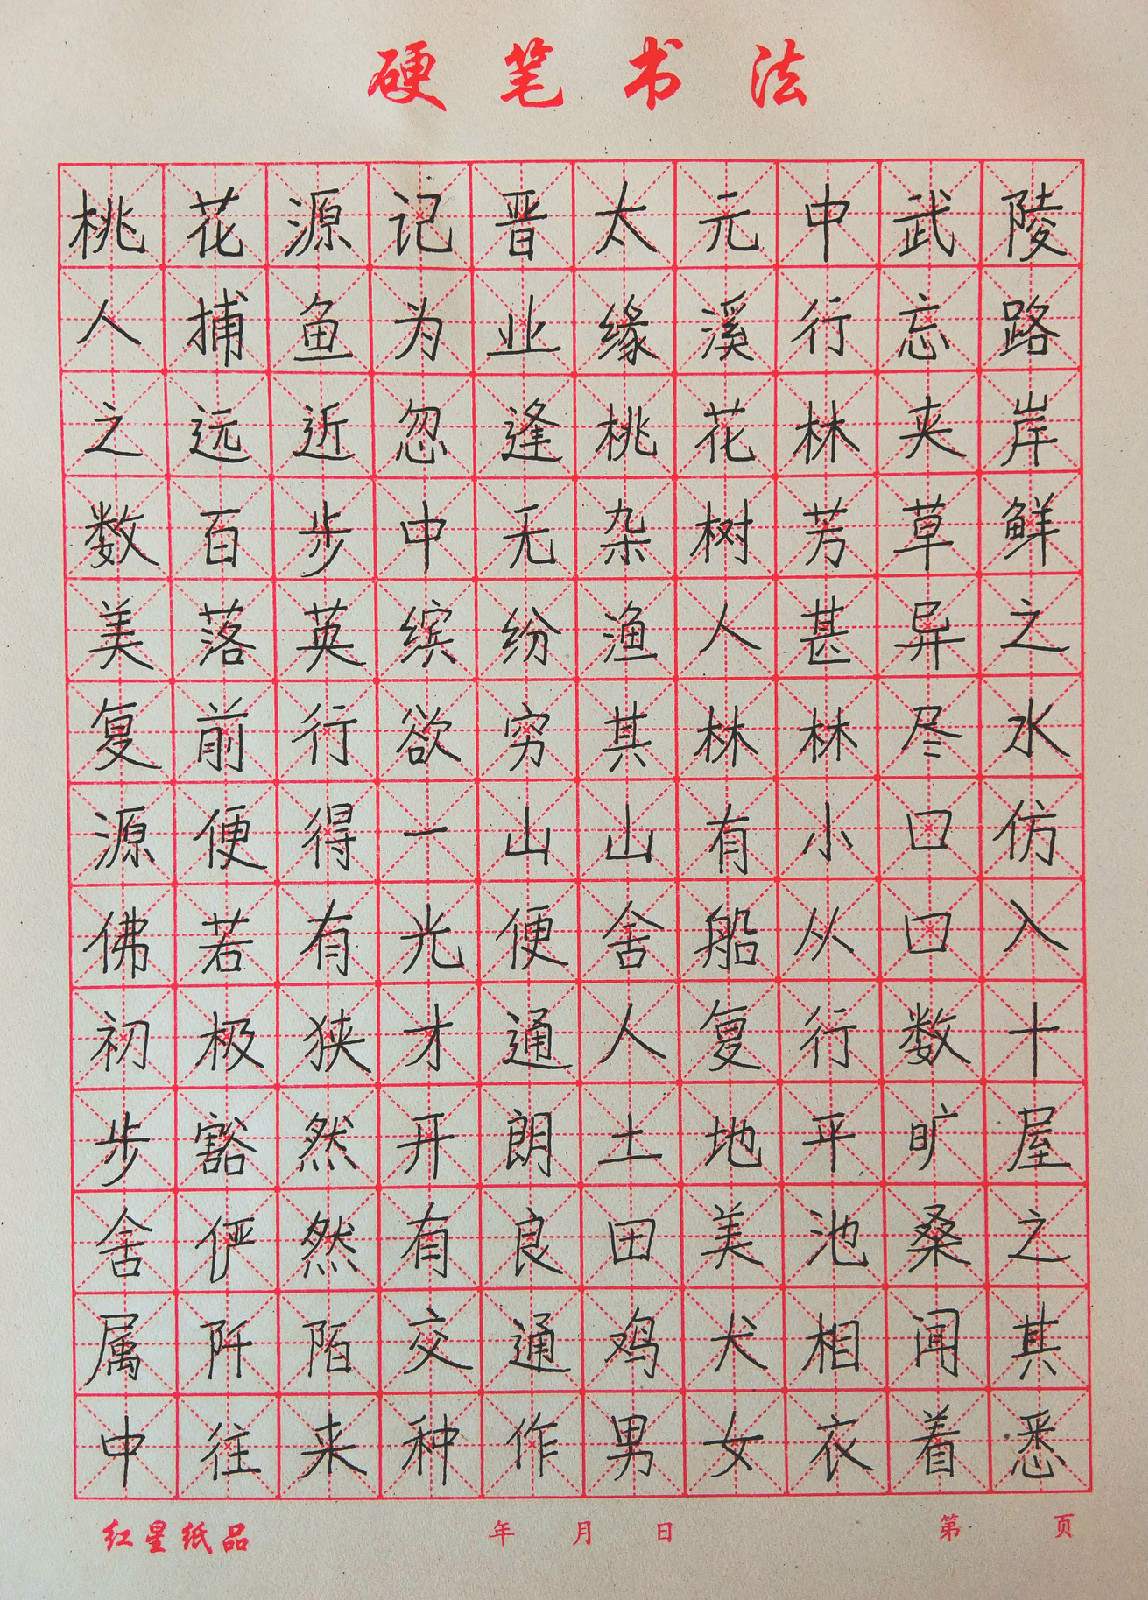 硬笔书法
桃花源记晋太元中武陵
人捕鱼为业缘溪行忘路
之远近忽逢桃花林夹岸
数百步中无杂树芳草鲜
美落英缤纷渔人甚异之
复前行欲穷其林林尽水
源便得一山山有小口仿
佛若有光便舍船从口入
初极狭才通人复行数十
步豁然开朗土地平旷屋
舍俨然有良田美池桑之
属阡陌交通鸡犬相闻其
中往来种作男女衣着悉
红星纸品 年 月 日 第 页